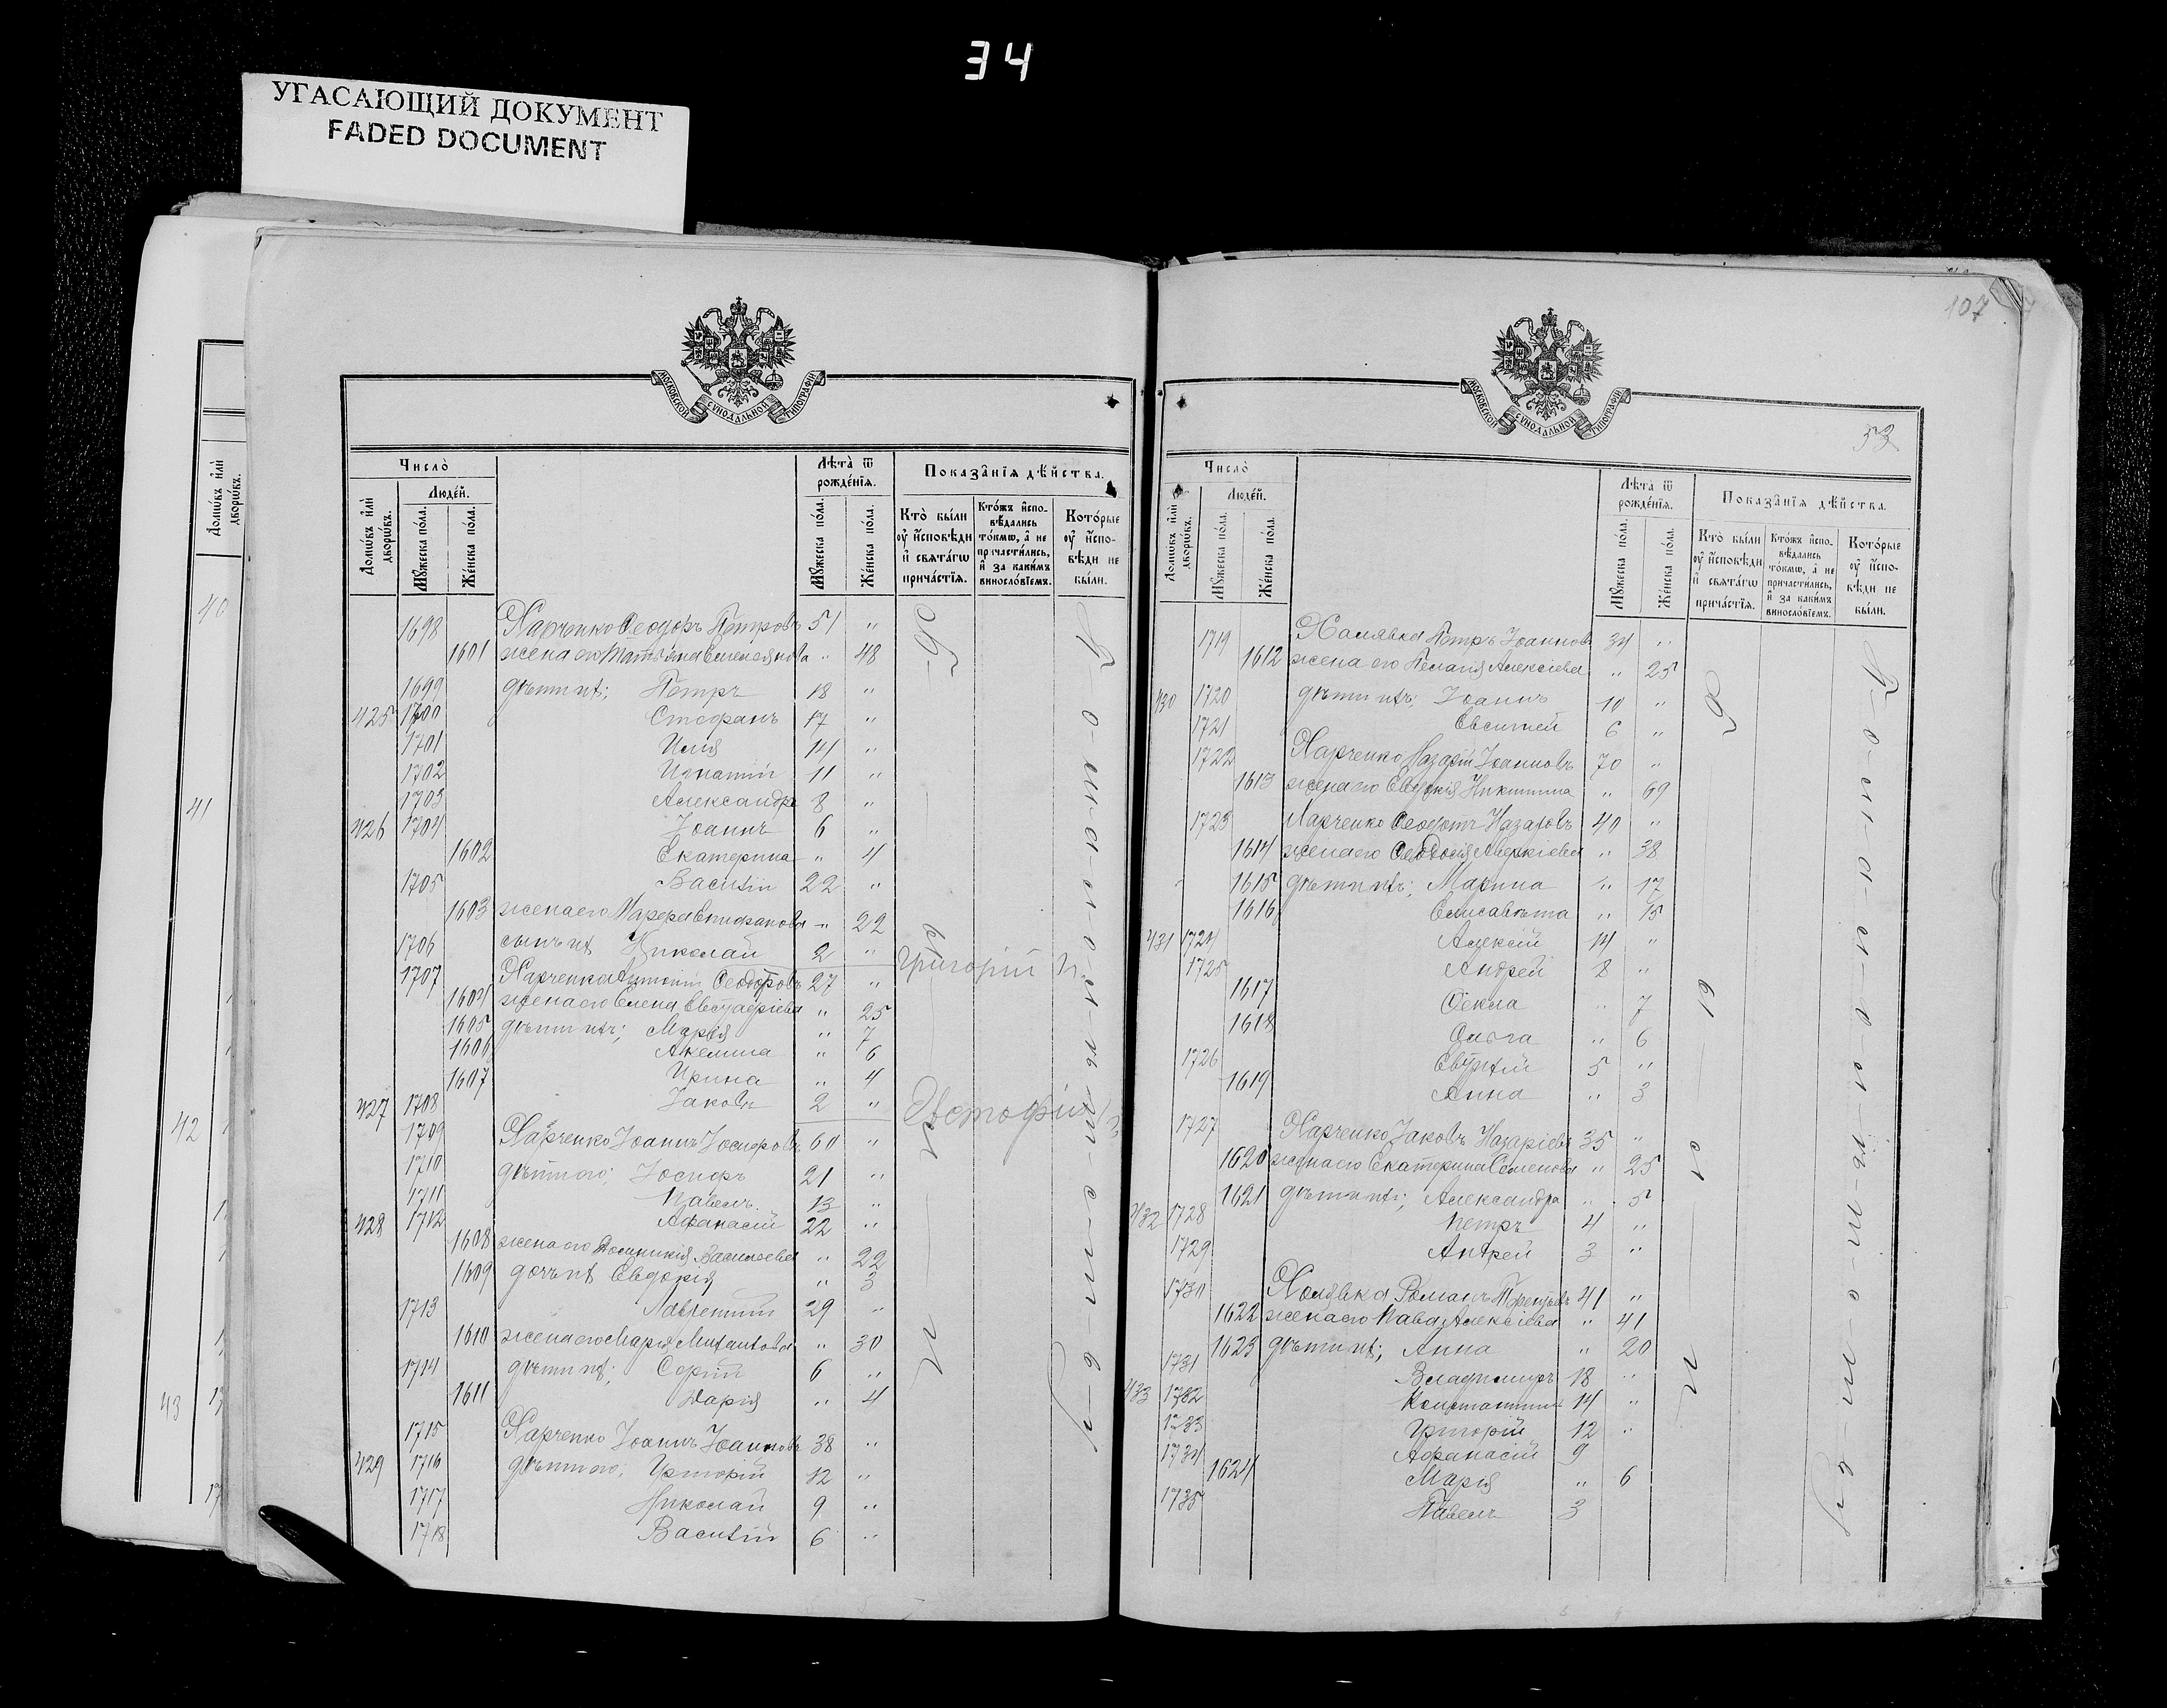 34
УГАСАЮЩИЙ ДОКУМЕНТ
FADED DOCUMENT
40
41
42
43
МОСКОВСКОЙ СѴНОДАЛЬНОЙ ТИПОГРАФІИ
Число̀
Людéй.
Лѣта̀ ѿ рождéнїѧ.
Показа̑нїѧ дѣ́йства.
Домѡ́въ и҆лѝ дворѡ́въ.
Мꙋ́жеска по́ла.
Же́нска по́ла.
Мꙋ́жеска по́ла.
Же́нска по́ла.
Кто̀ бы́ли оу҆ и҆́сповѣди и҆ свѧта́гѡ прича́стїѧ.
Кто́жъ и҆спо-вѣ́дались то́кмѡ, а҆ не причасти́лись, и҆ за каки́мъ виносло́вїемъ.
Кото́рые оу҆ и҆́спо-вѣди не бы́ли.
1698 Харченко Ѳеодоръ Петровъ 51 "
1601 жена его Татьяна Емельянова " 48
1699 дѣти ихъ; Петръ 18 "
425 1700 Стефанъ 17 "
1701 Илія 14 "
1702 Игнатій 11 "
1703 Александръ 8 "
426 1704 Іоаннъ 6 "
1602 Екатерина " 4
1705 Василій 22 "
1603 жена его Марѳа Епифанова " 22
1706 сынъ ихъ Николай 2 "
1707 Харченко Антоній Ѳеодоровъ 27 "
Григорій
1604 жена его Елена Евстафіева " 25
1605 дѣти ихъ; Марія " 7
1606 Акелина " 6
1607 Ирина " 4
427 1708 Іаковъ 2 "
1709 Харченко Іоаннъ Іосифовъ 60 "
1710 дѣти его; Іосифъ 21 "
1711 Павелъ 13 "
428 1712 Афанасій 22 "
1608 жена его Васильева " 22
1609 дочь ихъ Евдокія " 3
1713 Лаврентій 29 "
1610 жена его Марія " 30
1714 дѣти ихъ; Сергій 6 "
1611 Дарія " 4
1715 Харченко Іоаннъ Іоанновъ 38 "
429 1716 дѣти его; Григорій 12 "
1717 Николай 9 "
1718 Василій 6 "
107
МОСКОВСКОЙ СѴНОДАЛЬНОЙ ТИПОГРАФІИ
53
Число̀
Людéй.
Лѣта̀ ѿ рождéнїѧ.
Показа̑нїѧ дѣ́йства.
Домѡ́въ и҆лѝ дворѡ́въ.
Мꙋ́жеска по́ла.
Же́нска по́ла.
Мꙋ́жеска по́ла.
Же́нска по́ла.
Кто̀ бы́ли оу҆ и҆́сповѣди и҆ свѧта́гѡ прича́стїѧ.
Кто́жъ и҆спо-вѣ́дались то́кмѡ, а҆ не причасти́лись, и҆ за каки́мъ виносло́вїемъ.
Кото́рые оу҆ и҆́спо-вѣди не бы́ли.
1719 Халявка Петръ Іоанновъ 34 "
1612 жена его Пелагія Алексіева " 25
430 1720 дѣти ихъ; Іоаннъ 10 "
1721 Евсигней 6 "
1722 Харченко Назарій Іоанновъ 70 "
1613 жена его Евдокія Никитина " 69
1723 Харченко Ѳеодотъ Назаровъ 40 "
1614 жена его Ѳеодосія " 38
1615 дѣти ихъ; Марина " 17
1616 Елисавета " 15
431 1724 Алексій 14 "
1725 Андрей 8 "
1617 Ѳекла " 7
1618 Ольга " 6
1726 5 "
1619 Анна " 3
1727 Харченко Іаковъ Назаріевъ 35 "
1620 жена его Екатерина Семенова " 25
1621 дѣти ихъ; Александра " 5
432 1728 Петръ 4 "
1729 Андрей 3 "
1730 Халявка Романъ 41 "
1622 жена его Алексіева " 41
1623 дѣти ихъ; Анна " 20
1731 Владиміръ 18 "
433 1732 Константинъ 14 "
1733 Григорій 12 "
1734 Афанасій 9
1624 Марія " 6
1735 Павелъ 3